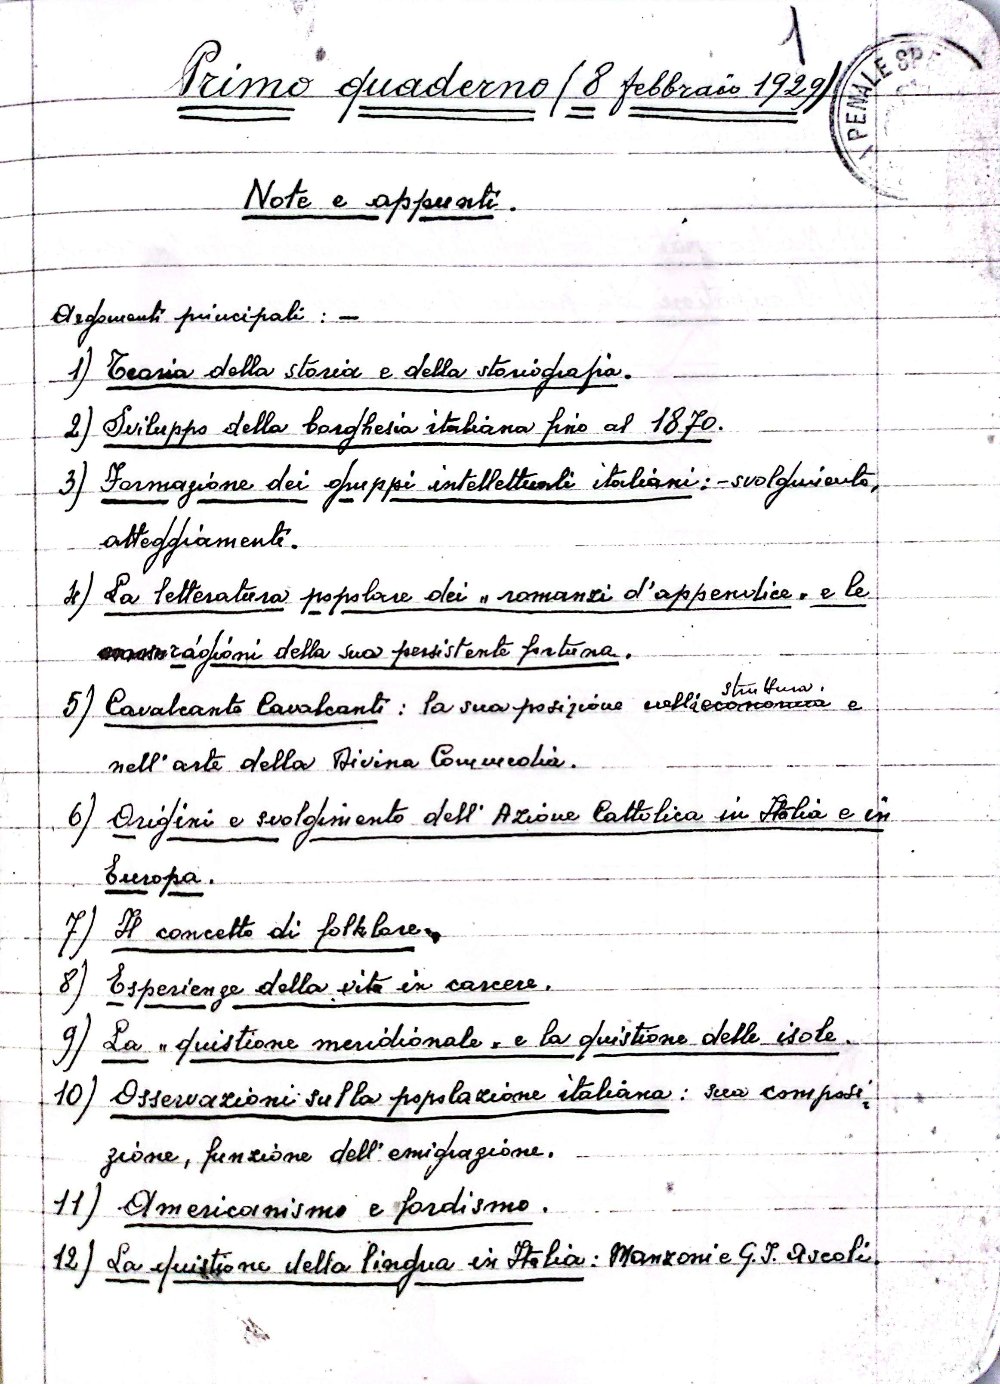 1
Primo quaderno (8 febbraio 1929)
PENALE SP
Note e appunti.
Argomenti principali : —
1) Teoria della storia e della storiografia.
2) Sviluppo della borghesia italiana fino al 1870.
3) Formazione dei gruppi intellettuali italiani: - svolgimento,
atteggiamenti.
4) La letteratura popolare dei „ romanzi d'appendice „ e le
ragioni della sua persistente fortuna.
struttura.
5) Cavalcante Cavalcanti : la sua posizione nell'economia e
nell'arte della Divina Commedia.
6) Origini e svolgimento dell'Azione Cattolica in Italia e in
Europa.
7) Il concetto di folklore.
8) Esperienze della vita in carcere.
9) La „ quistione meridionale „ e la quistione delle isole.
10) Osservazioni sulla popolazione italiana : sua composi-
zione, funzione dell'emigrazione.
11) Americanismo e fordismo.
12) La quistione della lingua in Italia : Manzoni e G. I. Ascoli.